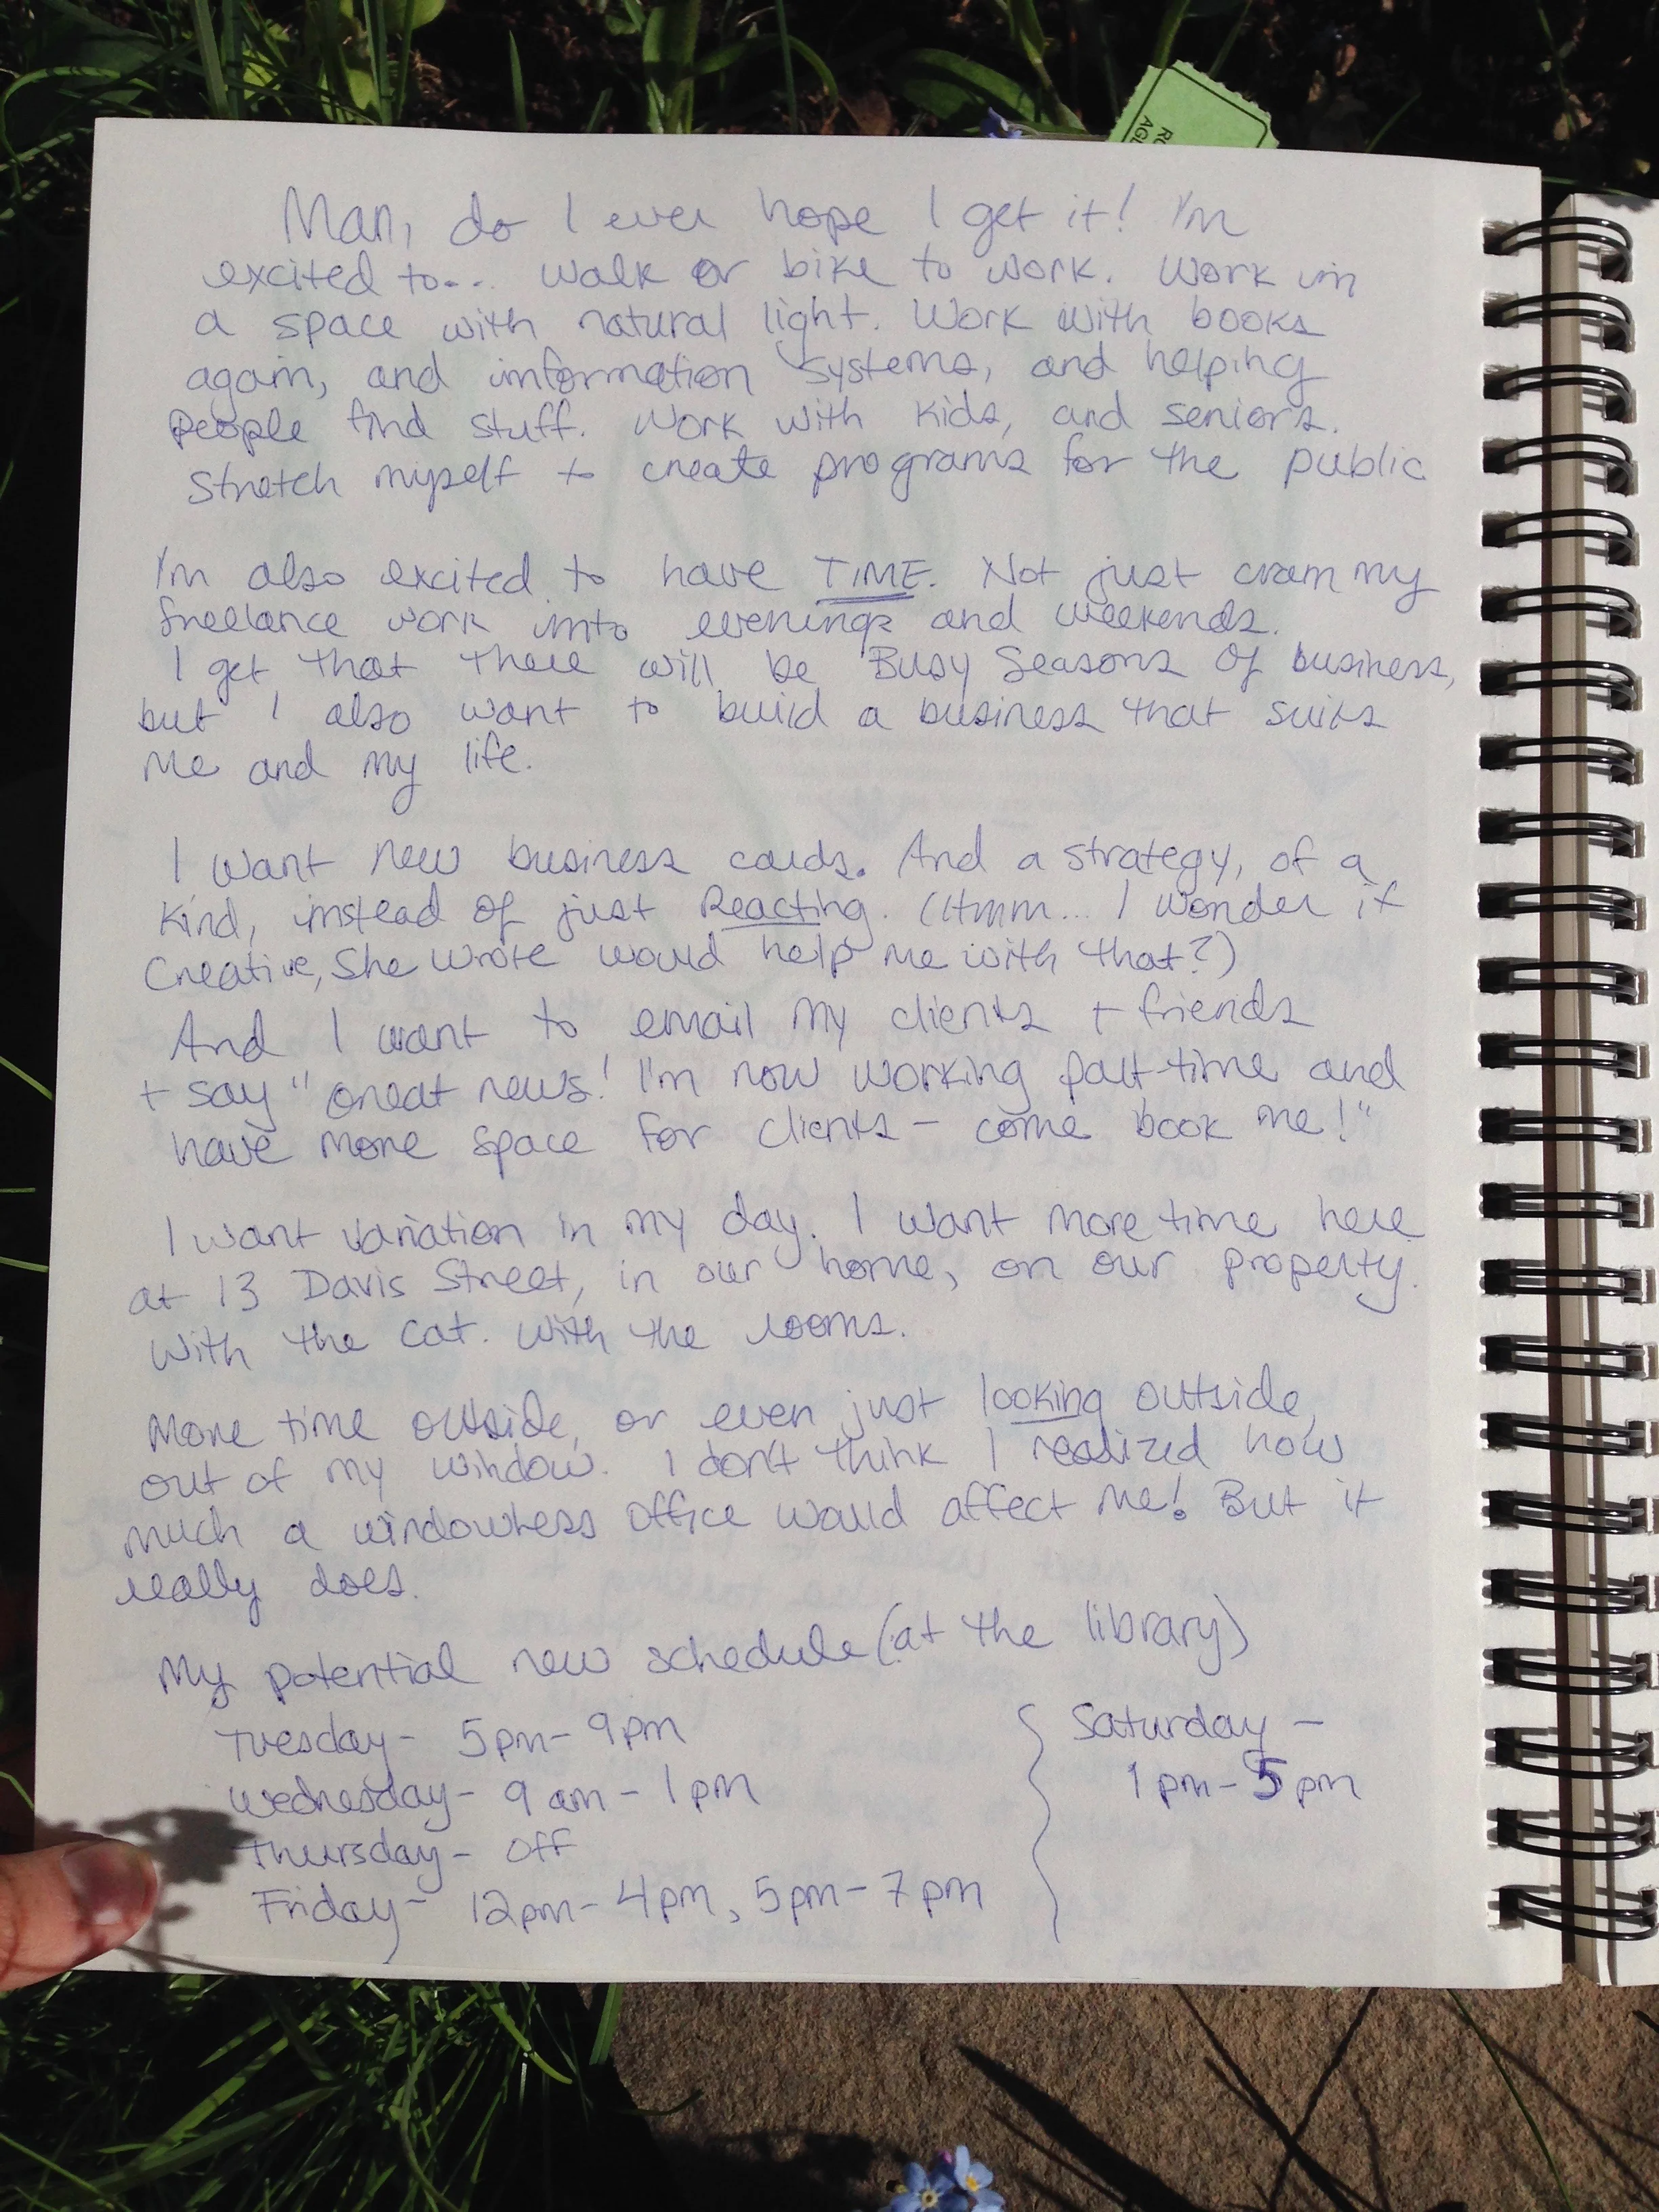 RO
AGL
Man, do I ever hope I get it! I'm
excited to... walk or bike to work. Work in
a space with natural light. Work with books
again, and information systems, and helping
people find stuff. Work with kids, and seniors.
Stretch myself to create programs for the public
I'm also excited to have TIME. Not just cram my
freelance work into evenings and weekends.
I get that there will be Busy Seasons of business,
but I also want to build a business that suits
me and my life.
I want new business cards. And a strategy, of a
kind, instead of just Reacting. (Hmm... I wonder if
Creative, She Wrote would help me with that?)
And I want to email my clients + friends
+ say "Great news! I'm now working part-time and
have more space for clients - come book me!"
I want variation in my day. I want more time here
at 13 Davis Street, in our home, on our property.
With the cat. With the rooms.
More time outside, or even just looking outside,
out of my window. I don't think I realized how
much a windowless office would affect me! But it
really does.
My potential new schedule (at the library)
Tuesday - 5pm - 9pm
Wednesday - 9 am - 1pm
Thursday - Off
Friday - 12pm - 4pm, 5pm - 7pm
Saturday -
1pm - 5pm